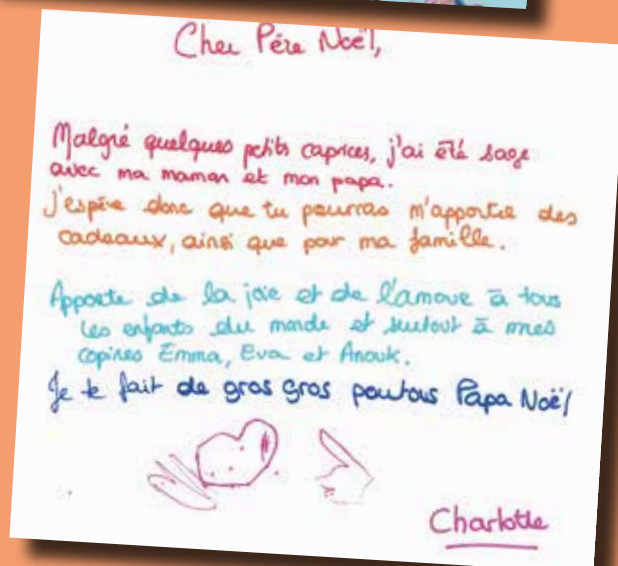 Cher Père Noël,
Malgré quelques petits caprices, j'ai été sage
avec ma maman et mon papa.
J'espère donc que tu pourras m'apporter des
cadeaux, ainsi que pour ma famille.
Apporte de la joie et de l'amour à tous
les enfants du monde et surtout à mes
copines Emma, Eva et Anouk.
Je te fait de gros gros poutous Papa Noël
Charlotte